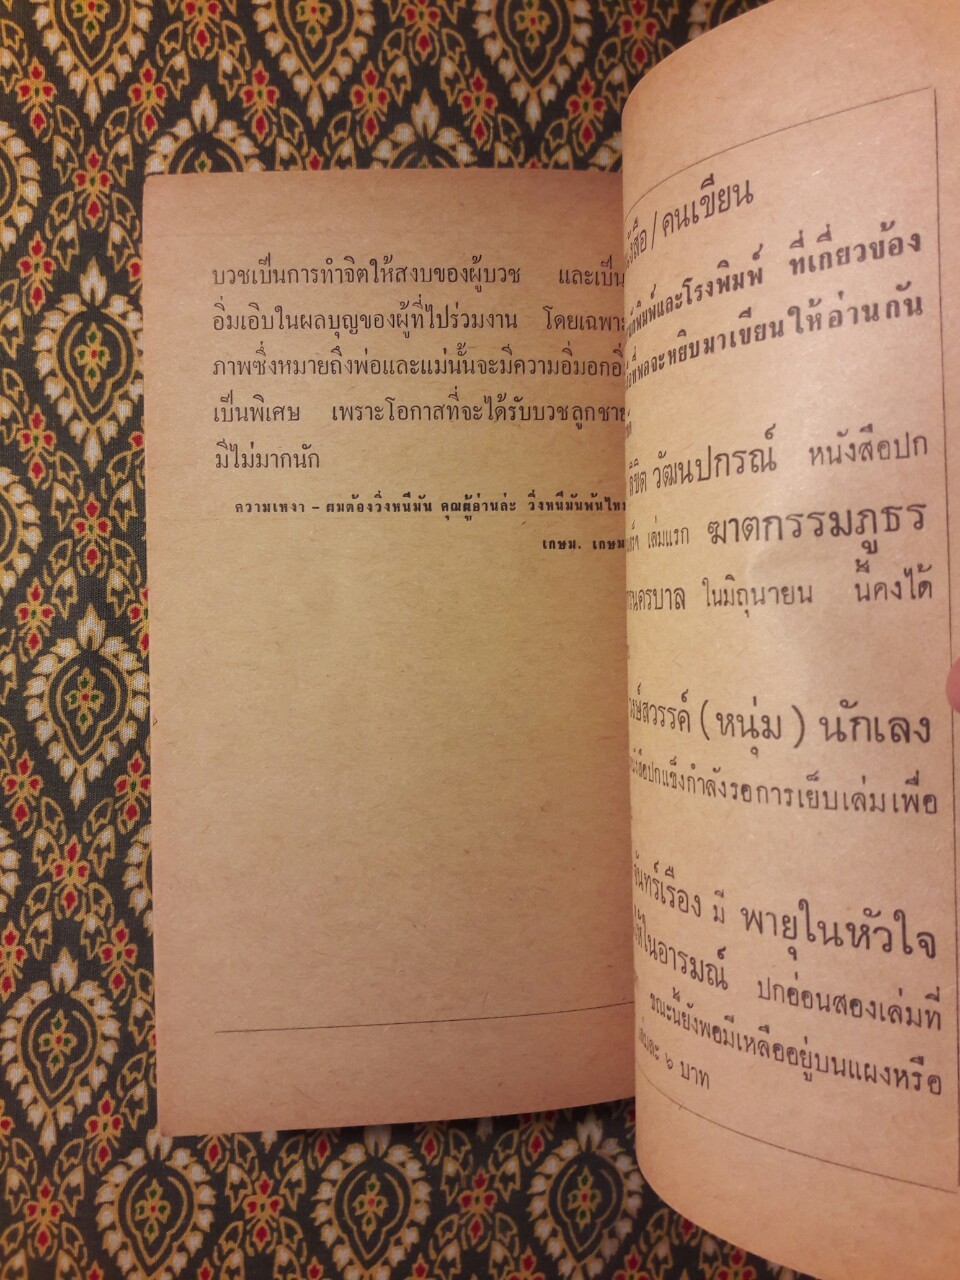 บวชเป็นการทำจิตให้สงบของผู้บวช และเป็น
อิ่มเอิบในผลบุญของผู้ที่ไปร่วมงาน โดยเฉพาะ
ภาพซึ่งหมายถึงพ่อและแม่นั้นจะมีความอิ่มอกอิ่
เป็นพิเศษ เพราะโอกาสที่จะได้รับบวชลูกชาย
มีไม่มากนัก
ความเหงา – ผมต้องวิ่งหนีมัน คุณผู้อ่านล่ะ วิ่งหนีมันพ้นไหม
เกษม. เกษม
/ คนเขียน
พิมพ์และโรงพิมพ์ ที่เกี่ยวข้อง
จะหยิบมาเขียนให้อ่านกัน
วัฒนปกรณ์ หนังสือปก
เล่มแรก ฆาตกรรมภูธร
นครบาล ในมิถุนายน นี้คงได้
สวรรค์ (หนุ่ม) นักเลง
ปกแข็งกำลังรอการเย็บเล่มเพื่อ
จันทร์เรือง มี พายุในหัวใจ
ในอารมณ์ ปกอ่อนสองเล่มที่
ขณะนี้ยังพอมีเหลืออยู่บนแผงหรือ
๖ บาท